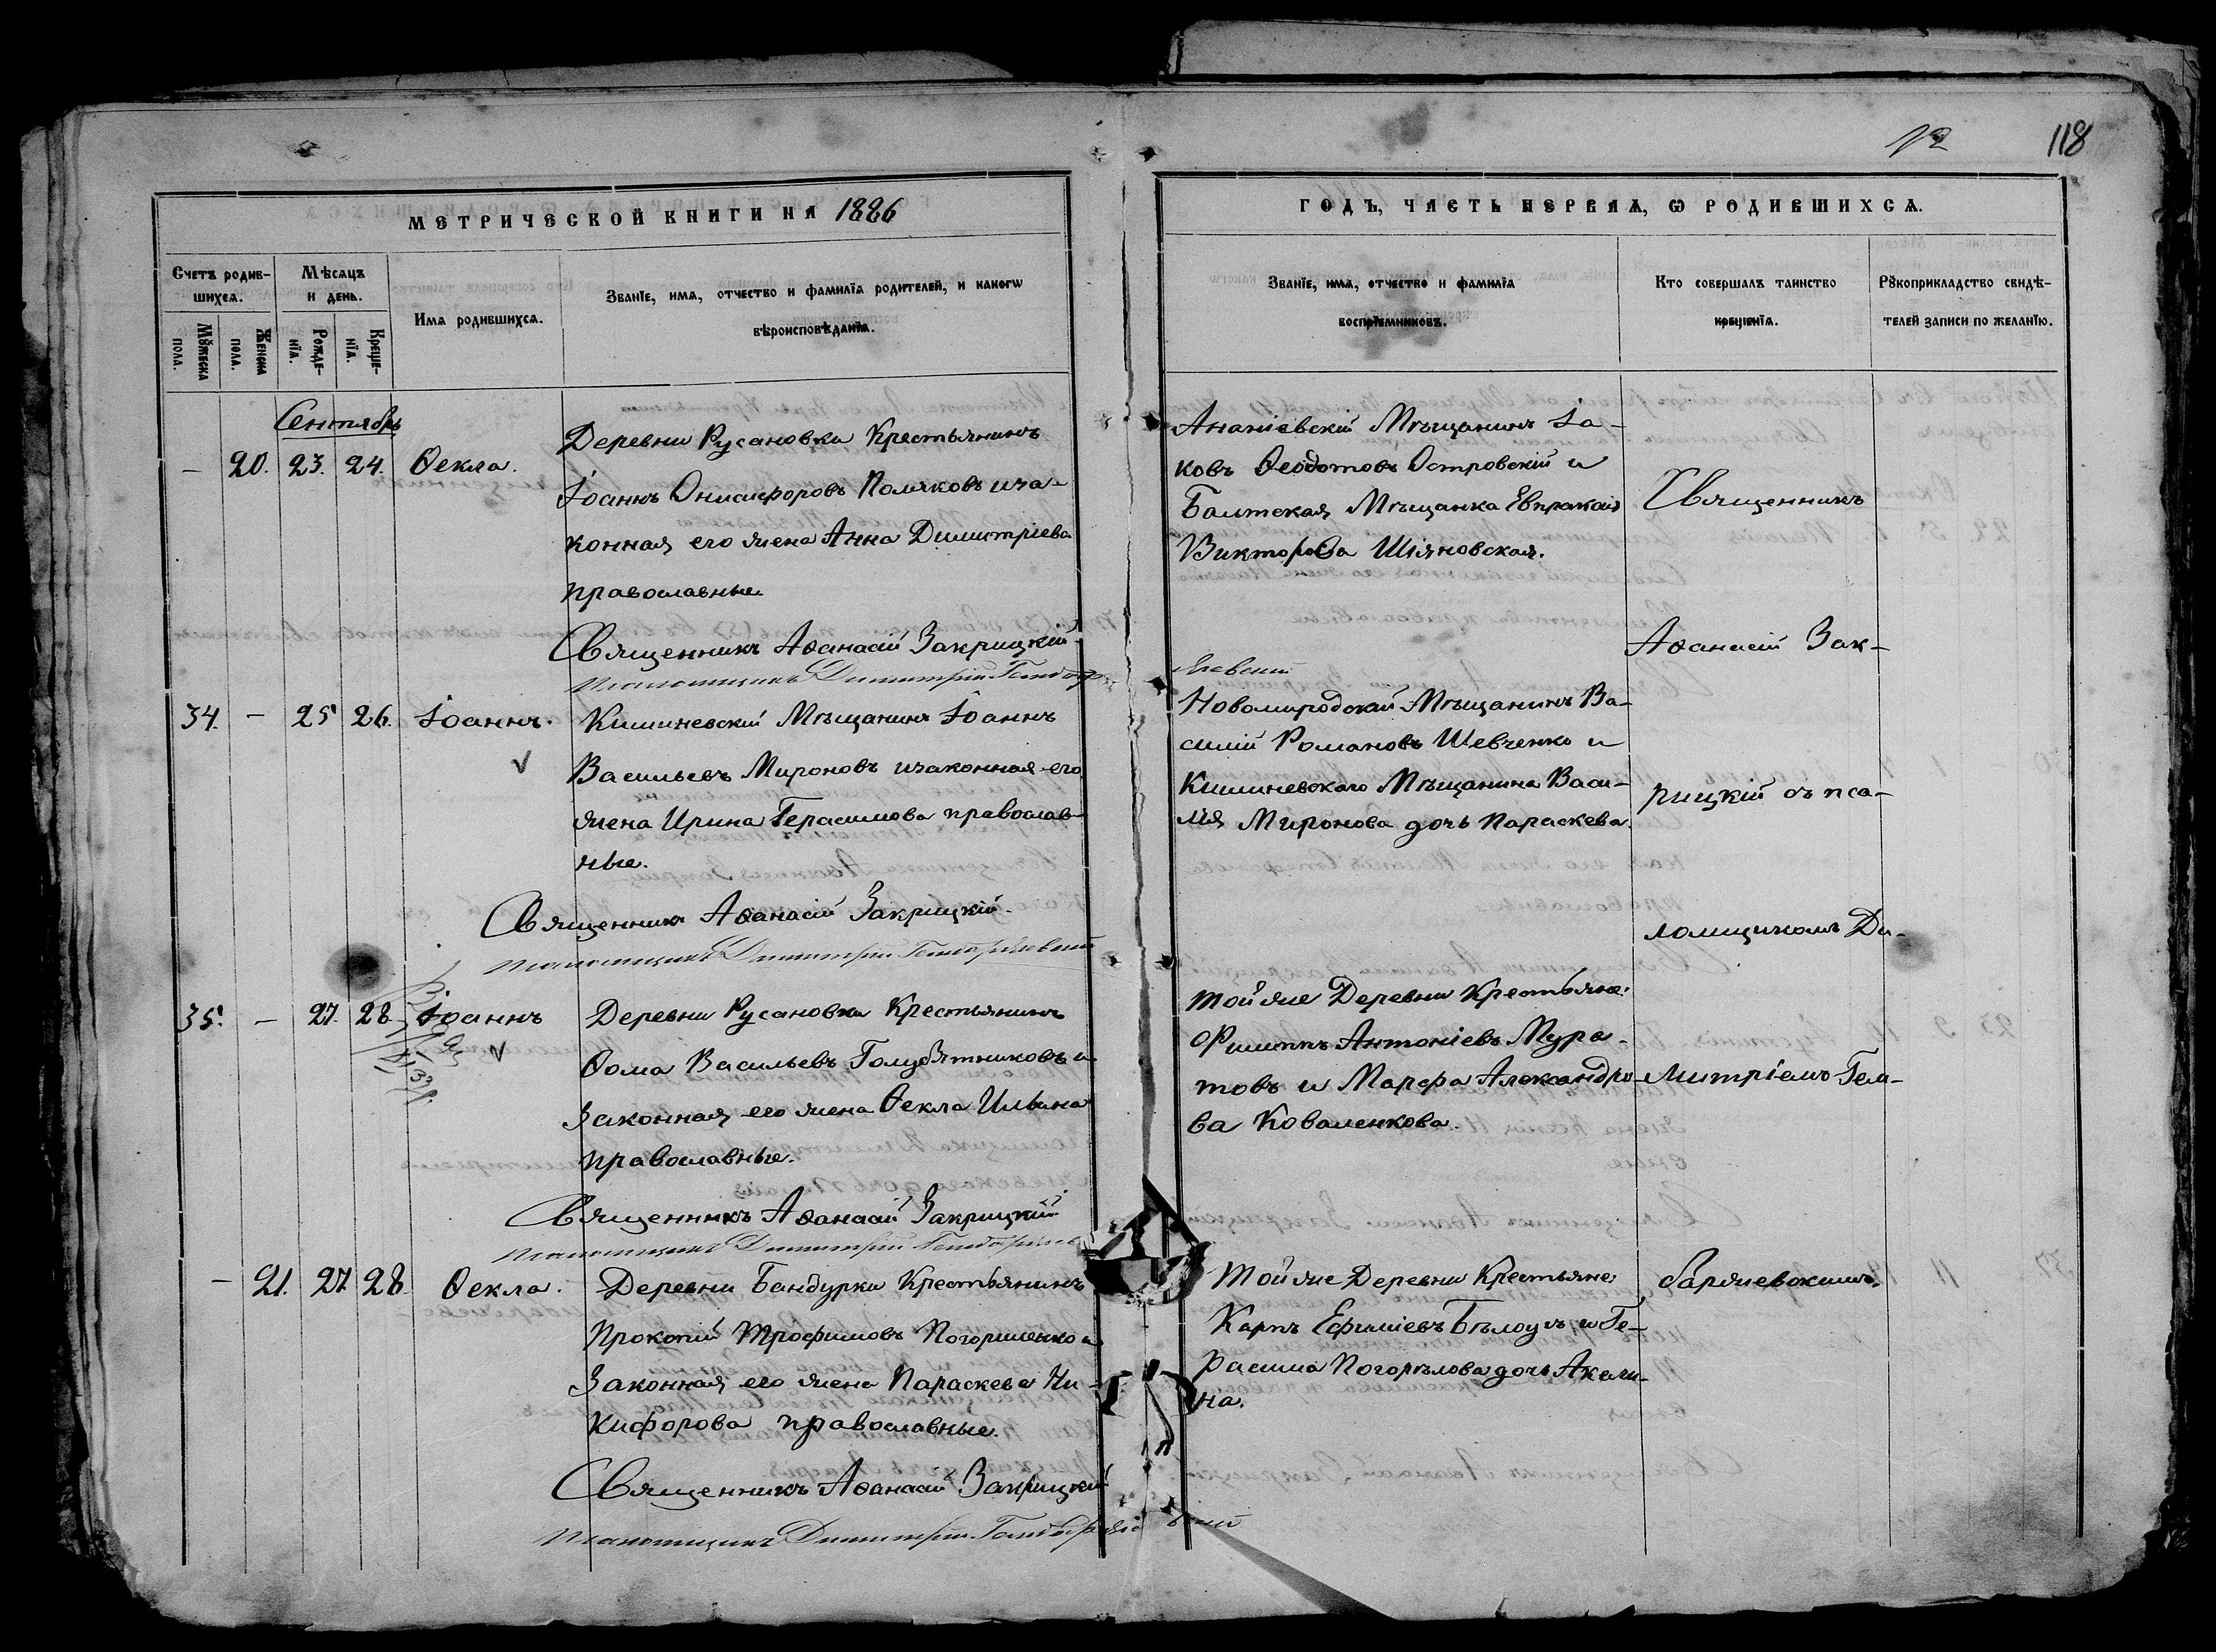 118
МЕТРИЧЕСКОЙ КНИГИ НА 1886
ГОДЪ, ЧАСТЬ ПЕРВАЯ, Ѡ РОДИВШИХСѦ.
Счетъ родив-
шихсѧ.
Мѣсѧцъ
и день.
Мꙋжеска
пола.
Женска
пола.
Рожде-
нїѧ.
Креще-
нїѧ.
Имѧ родившихсѧ.
Званїе, имѧ, отчество и фамилїѧ родителей, и какогѡ
вѣроисповѣданїѧ.
Званїе, имѧ, отчество и фамилїѧ
воспрїемниковъ.
Кто совершалъ таинство
крещенїѧ.
Рꙋкоприкладство свидѣ-
телей записи по желанїю.
Сентябрь
— 20. 23. 24. Ѳекла.
Деревни Русановка Крестьянинъ
Іоаннъ Онисифоровъ Поляковъ иза-
конная его жена Анна Димитріева
православные.
Священникъ Аѳанасій Закрицкій
Псаломщикъ Димитрій Гембар
жевскій
Ананіевскій Мѣщанинъ Іа-
ковъ Ѳеодотовъ Островскій и
Балтская Мѣщанка Евпраксія
Викторова Шіяновская.
34. — 25 26. Іоаннъ.
Кишиневскій Мѣщанинъ Іоаннъ
Васильевъ Мироновъ изаконная его
жена Ирина Герасимова православ-
ные.
Священникъ Аѳанасій Закрицкій.
Псаломщикъ Димитрій Гембаржевскій
Новомиродскій Мѣщанинъ Ва-
силій Романовъ Шевченко и
Кишиневскаго Мѣщанина Васи-
лія Миронова дочь Параскева.
35. — 27. 28. Іоаннъ
Деревни Русановка Крестьянинъ
Ѳома Васильевъ Голубятниковъ и
Законная его жена Ѳекла Ильина
православные.
Священникъ Аѳанасій Закрицкій
Псаломщикъ Димитрій Гембаржев
Тойже Деревни Крестьяне:
Филиппъ Антоніевъ Мура-
товъ и Марфа Александро-
ва Коваленкова.
— 21. 27. 28. Ѳекла.
Деревни Бандурки Крестьянинъ
Прокопій Трофимовъ Погориленко и
Законная его жена Параскева Ни-
кифорова православные.
Священникъ Аѳанасій Закрицкій
Псаломщикъ Димитрій Гембаржевскій
Тойже Деревни Крестьяне:
Карпъ Ефиміевъ Бѣлоусъ и Ге-
расима Погорѣлова дочь Акели-
на.
Священникъ
Аѳанасій Зак-
рицкій съ пса-
ломщикомъ Ди-
митріемъ Гем-
баржевскимъ.